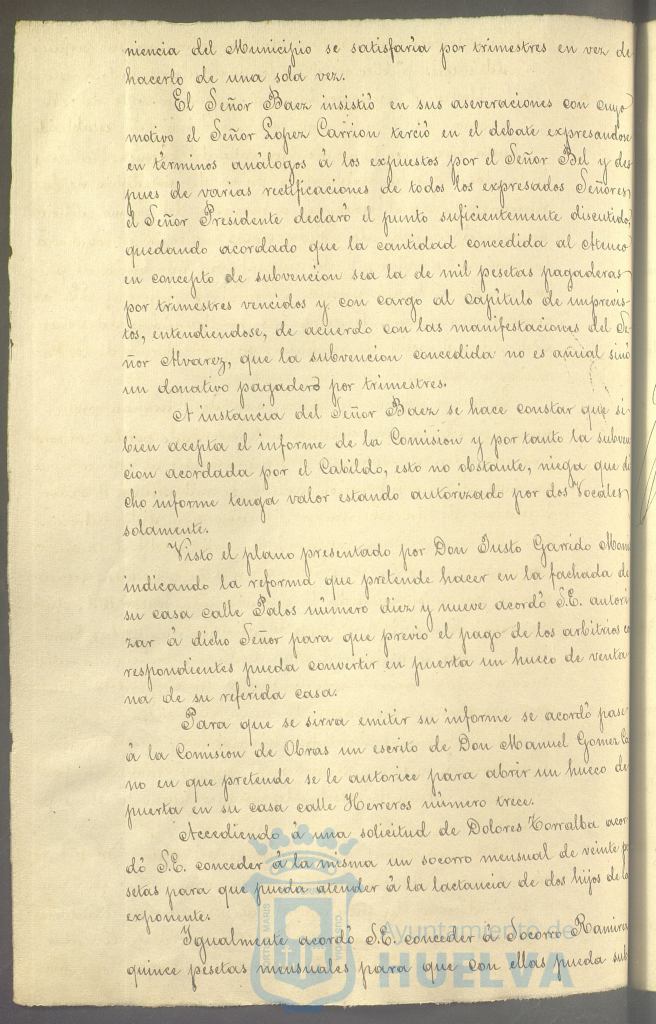 niencia del Municipio se satisfaria por trimestres en vez de
hacerlo de una sola vez.
El Señor Baez insistió en sus aseveraciones con cuyo
motivo el Señor Lopez Carrion terció en el debate expresandose
en términos análogos á los expuestos por el Señor Bel y des
pues de varias rectificaciones de todos los expresados Señores
el Señor Presidente declaró el punto suficientemente discutido,
quedando acordado que la cantidad concedida al Ateneo
en concepto de subvencion sea la de mil pesetas pagaderas
por trimestres vencidos y con cargo al capitulo de imprevis-
tos, entendiendose, de acuerdo con las manifestaciones del Se-
ñor Alvarez, que la subvencion concedida no es anual sinó
un donativo pagadero por trimestres.
A instancia del Señor Baez se hace constar que si-
bien acepta el informe de la Comision y por tanto la subven
cion acordada por el Cabildo, esto no obstante, niega que di
cho informe tenga valor estando autorizado por dos Vocales
solamente.
Visto el plano presentado por Don Justo Garrido
indicando la reforma que pretende hacer en la fachada de
su casa calle Palos número diez y nueve acordó S.E. autori
zar á dicho Señor para que previo el pago de los arbitrios co
rrespondientes pueda convertir en puerta un hueco de venta
na de su referida casa.
Para que se sirva emitir su informe se acordó pase
á la Comision de Obras un escrito de Don Manuel Gomez
no en que pretende se le autorice para abrir un hueco de
puerta en su casa calle Herreros número trece.
Accediendo á una solicitud de Dolores Torralba acor
dó S.E. conceder á la misma un socorro mensual de veinte pe
setas para que pueda atender á la lactancia de dos hijos de la
exponente.
Igualmente acordó S.E. conceder á Socorro Ramirez
quince pesetas mensuales para que con ellas pueda sub
Ayuntamiento de
HUELVA